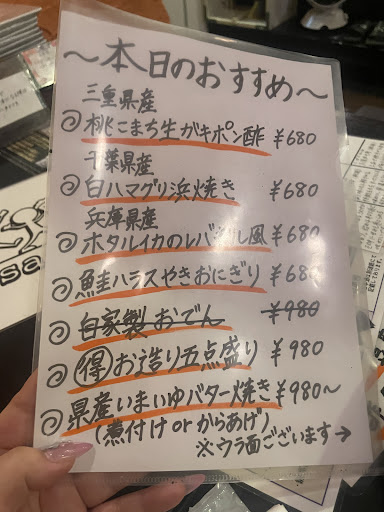 ～本日のおすすめ～
三重県産
◎桃こまち生ガキポン酢 ¥680
千葉県産
◎白ハマグリ浜焼き ¥680
兵庫県産
◎ホタルイカのレバ刺し風 ¥680
◎鮭ハラスやきおにぎり ¥680
◎自家製おでん ¥980
◎得お造り五点盛り ¥980
◎県産いまいゆバター焼き ¥980～
(煮付け or からあげ)
※ウラ面ございます→